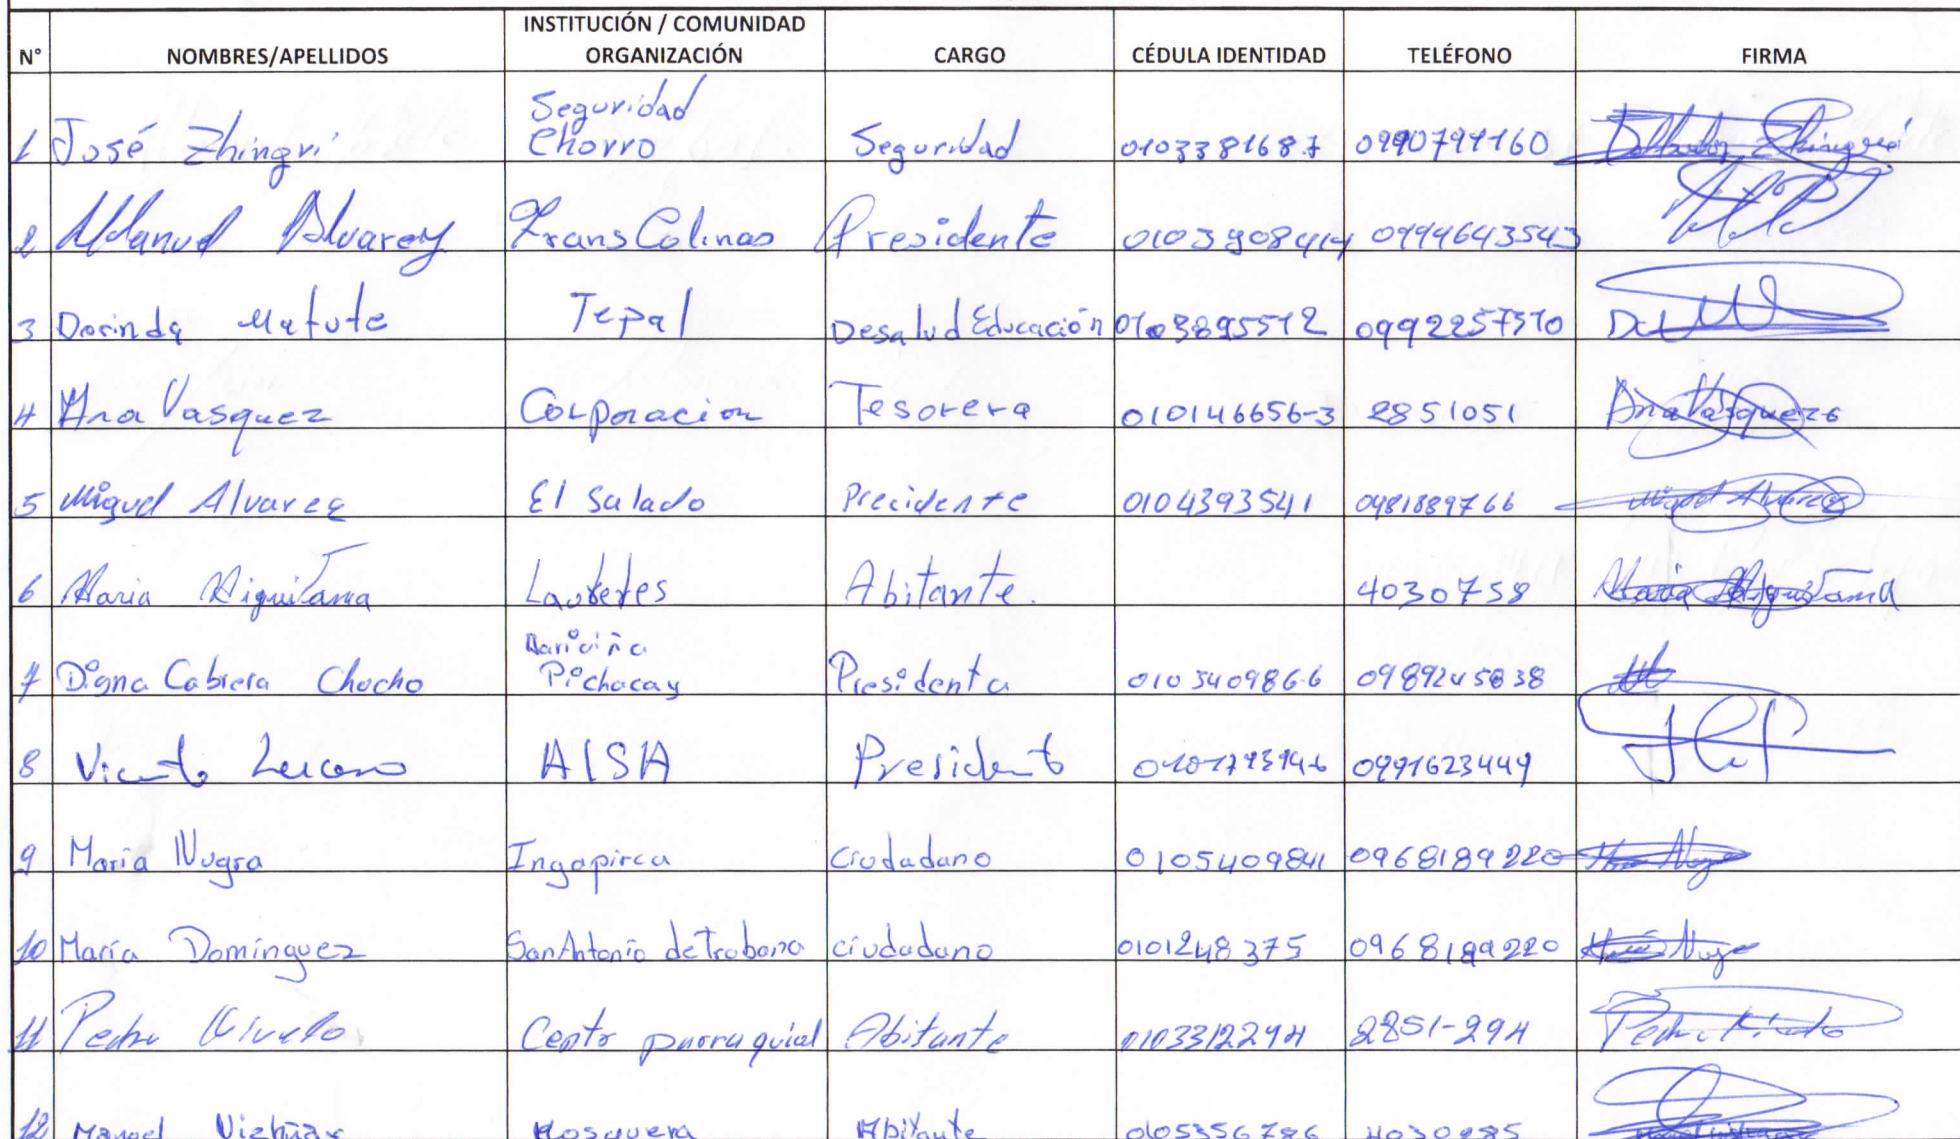 N° NOMBRES/APELLIDOS INSTITUCIÓN / COMUNIDAD ORGANIZACIÓN CARGO CÉDULA IDENTIDAD TELÉFONO FIRMA
1 José Zhingri Seguridad Chorro Seguridad 0103381687 0990794160 Zhingri
2 Manuel Alvarez TransColinas Presidente 0103908414 0994643543
3 Dorinda Matute Tepal Desalud Educación 0103895512 0992257510
4 Ana Vasquez Corporacion Tesorera 010146656-3 2851051 Ana Vásquez
5 Miguel Alvarez El Salado Precidente 0104393541 0981889766 Miguel Alvarez
6 Maria Miguitama Laureles Abitante. 4030758 Maria Miguitama
7 Digna Cabrera Chocho Pichacay Presidenta 010340986-6 0989245838
8 Vicente Lucero AISA Presidente 0991623449
9 María Nugra Ingapirca ciudadano 0105409841 0968189220
10 María Domínguez San Antonio de Trabana ciudadano 0101248375 0968189220
11 Pedro Centro parraquial Abitante 0103312294 2851-294 Pedro
12 Manuel Vizhñay Mosquera Abitante 0105356786 4030285